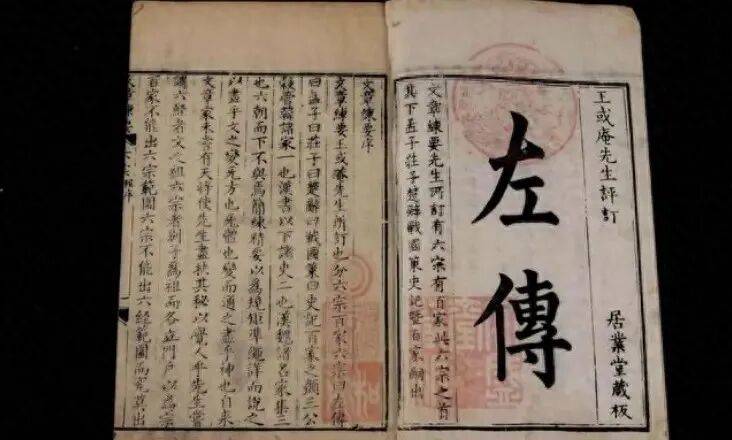 王或庵先生評訂
居業堂藏板
左傳
文章練要先生所訂有六宗有百家此六宗之首
其下孟子莊子楚辭戰國策史記暨百家嗣出
文章練要序
文章練要王或菴先生所訂也分六宗百家六宗曰左傳
曰孟子曰莊子曰楚辭曰戰國策曰史記百家之類三公
穀管韓諸家一也漢書以下諸史二也漢魏諸名家集三
也六朝而下不與焉簡練精要以爲規矩準繩詳而說之
以盡乎文之變无方也无體也變而通之盡乎神也自來
文章家未嘗有天將使先生盡抉其秘以覺人乎先生嘗
謂六經者文之祖六宗者別子爲祖而各立門戶以爲宗
百家不能出六宗範圍六宗不能出六經範圍而究莫出